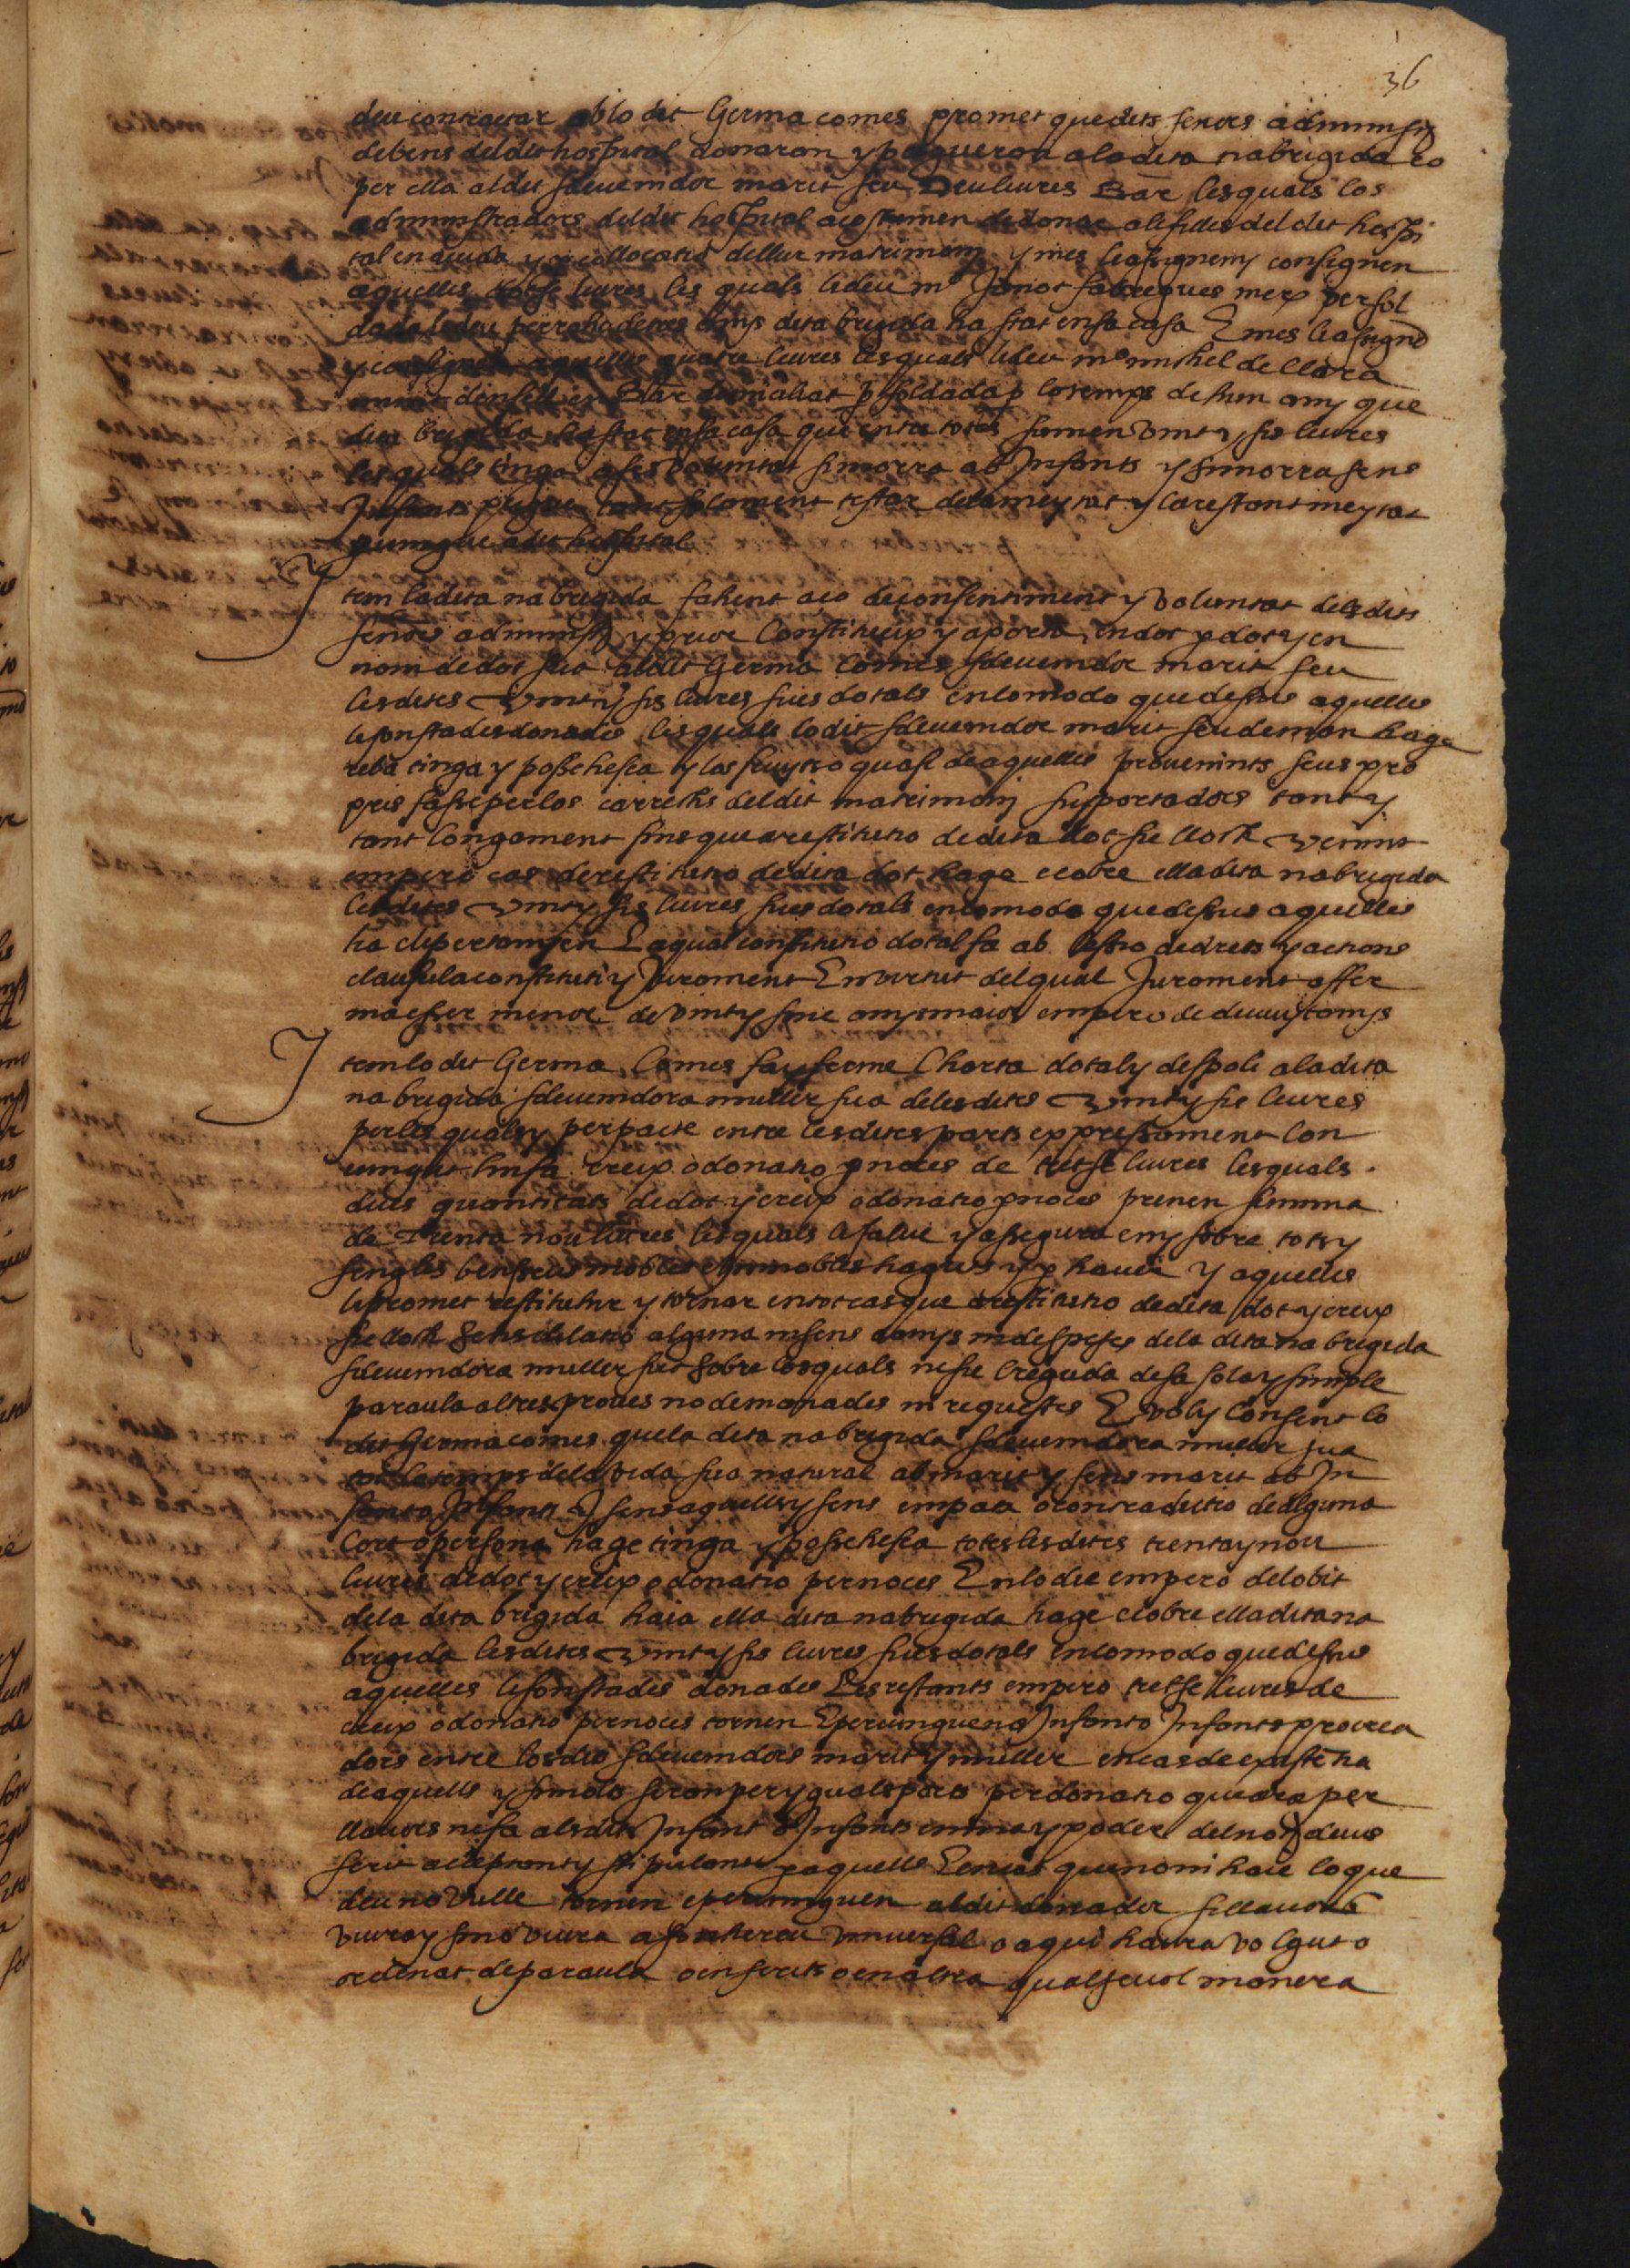 36
deu contractar ab lo dit Germa comes promet que dits senors administ
de bens del dit hospital donaran y pagueran a la dita na brigida eo
per ella al dit sdeuenidor marit seu Deu liures Bar lesquals los
administradors del dit hospital acostumen de donar a les filles del dit hospi
tal en aiuda y collocatio de llur matrimoni y mes li assignen y consignen
aquelles dotse liures les quals li deu mº Janot fabregues merx per sol
dada li deu per raho de tres anys dita brigida ha stat en sa casa E mes li assignē
y consignen aquelles quatre liures lesquals li deu mº michel de llara
Bar domiciliat p soldada p lo temps de hun any que
dita brigida ha stat en sa casa que entre totes sumen vint y sis liures
les quals tinga a ses voluntat si morra ab Infants y si morra sens
Infants pugue tant solament testar de la meytat y la restant meytat
peruingue a dit hospital
Item la dita na brigida fahent aço de consentiment y voluntat dels dits
senors administ y prior Constitueix y aporta en dot p dot y en
nom de dot sua al dit Germa Comes sdeuenidor marit seu
les dites vint y sis liures sues dotals en lo modo que desus aquelles
li son stades donades les quals lo dit sdeuenidor marit seu deman haga
reba tinga y possehesca y los fruyts o quasi de aquelles prouenints seus pro
pris fasse per los carrechs del dit matrimoni suportadors tant y
tant longament fins que a restitutio de dita dot sie lloch venint
empero cas de restitutio de dita dot haga e cobre ella dita na brigida
les dites vint y sis liures sues dotals en lo modo que desus aquelles
ha E aqual constitutio dotal fa ab cessio de drets y actions
clausula constituti y Jurament En virtut del qual Jurament affer
ma esser menor de vint y sinc anys maior empero de deuuyt anys
Item lo dit Germa Comes fa y ferme Charta dotal y despoli a la dita
na brigida sdeuenidora muller sua de les dites vint y sis liures
per les quals y per pacte entre les dites parts expressament con
uingut li fa creix o donatio p noces de tretse liures lesquals
dues quantitats de dot y creix o donatio p noces prenen summa
de Trenta nou liures les quals li salue y assegura en y sobre tots y
sengles bens seus mobles e immobles haguts y p hauer y aquelles
li promet restituhir y tornar en tot cas que a restitutio de dita dot y creix
sie lloch Sens dilatio alguna ni sens danys ni despeses de la dita na brigida
sdeuenidora muller sua sobre los quals ne sie creguda de sa sola y simple
paraula altres proues no demanades ni requestes E vol y Consent lo
dit Germa comes que la dita na brigida sdeuenidora muller sua
tot lo temps de la vida sua natural ab marit y sens marit ab In
fant o Infants y sens aquells y sens empatx o contradictio de alguna
Cort o persona hage tinga y posschesca totes les dites trenta y nou
liures de dot y creix o donatio per noces En lo die empero del obit
de la dita brigida haia ella dita na brigida hage e cobre ella dita na
brigida les dites vint y sis liures sues dotals en lo modo que desus
aquelles li son stades donades Les restants empero tretse liures de
creix o donatio per noces tornen E peruinguen a Infant o Infants procrea
dors entre los dits sdeuenidors marit y muller en cas de existētia
de aquells y si nols seran per yguals parts per donatio que ara per
llauors ne fa als dits Infant o Infants en ma y poder del notj deius
scrit acceptant y stipulant p aquells E en cas que noni haie lo que
deu no vulle tornen e peruinguen al dit donador si llauors
viura y si no viura a son hereu vniuersal o a qui haura volgut o
ordenat de paraula o en scrits o en altra qualseuol manera